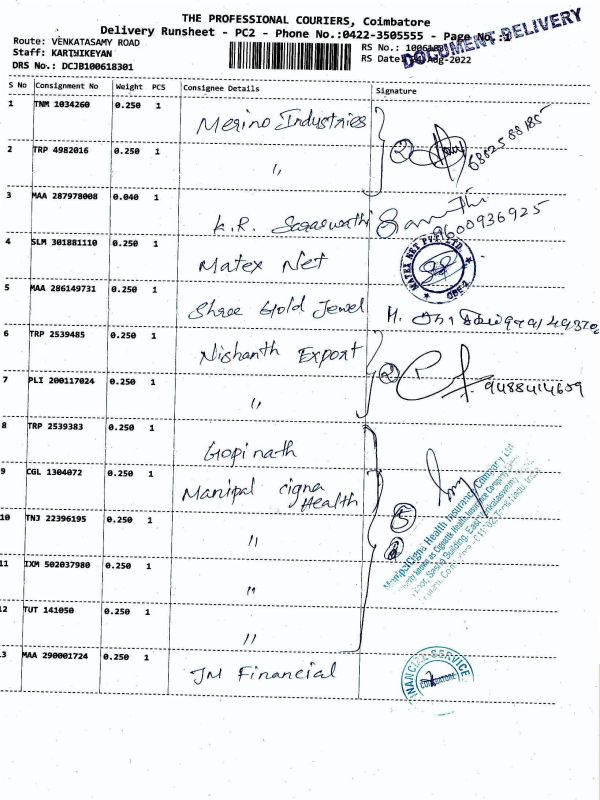 THE PROFESSIONAL COURIERS, Coimbatore
Delivery Runsheet - PC2 - Phone No.:0422-3505555 - Page No.:1
DOCUMENT DELIVERY
Route: VENKATASAMY ROAD
Staff: KARTHIKEYAN
DRS No.: DCJB100618301
RS No.:
RS Date: Aug-2022
S No Consignment No Weight PCS Consignee Details Signature
1 TNM 1034260 0.250 1 Merino Industries
2 TRP 4982016 0.250 1 〃
3 MAA 287978008 0.040 1 K.R. Saraswathi 9600936925
4 SLM 301881110 0.250 1 Matex Net MATEX NET PVT LTD
5 MAA 286149731 0.250 1 Shree Gold Jewel
6 TRP 2539485 0.250 1 Nishanth Export
7 PLI 200117024 0.250 1 〃 9488414609
8 TRP 2539383 0.250 1 Gopinath
9 CGL 1304072 0.250 1 Manipal cigna
Health
10 TNJ 22396195 0.250 1 〃
11 IXM 502037980 0.250 1 〃
12 TUT 141050 0.250 1 〃
13 MAA 290001724 0.250 1 JM Financial
ManipalCigna Health Insurance Company Ltd